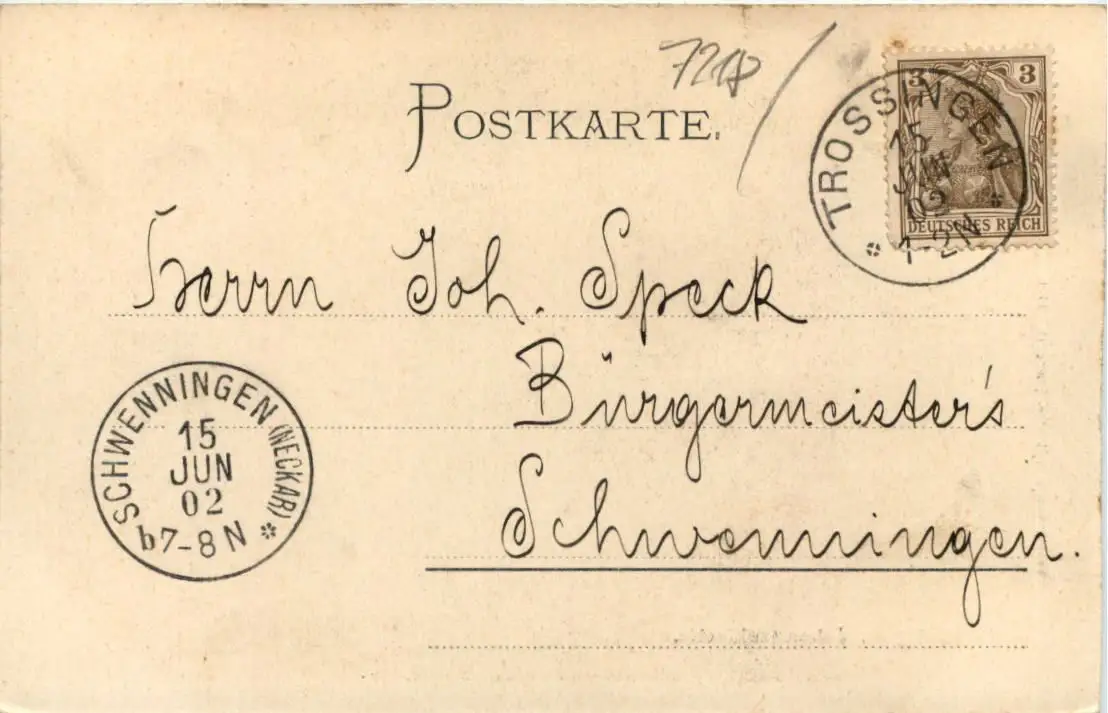 7218
POSTKARTE.
3 3
DEUTSCHES REICH
TROSSINGEN
15
JUN
02
1-2N
Herrn Joh. Speck
Bürgermeister's
Schwenningen.
SCHWENNINGEN (NECKAR)
15
JUN
02
b7-8N